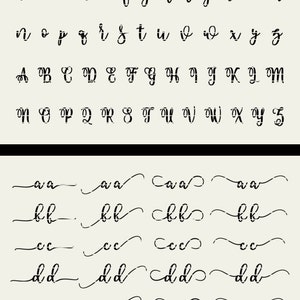 n o p q r s t u v w x y z
A B C D E F G H I J K L M
N O P Q R S T U V W X Y Z
aa aa aa aa
bb bb bb bb
cc cc cc cc
dd dd dd dd